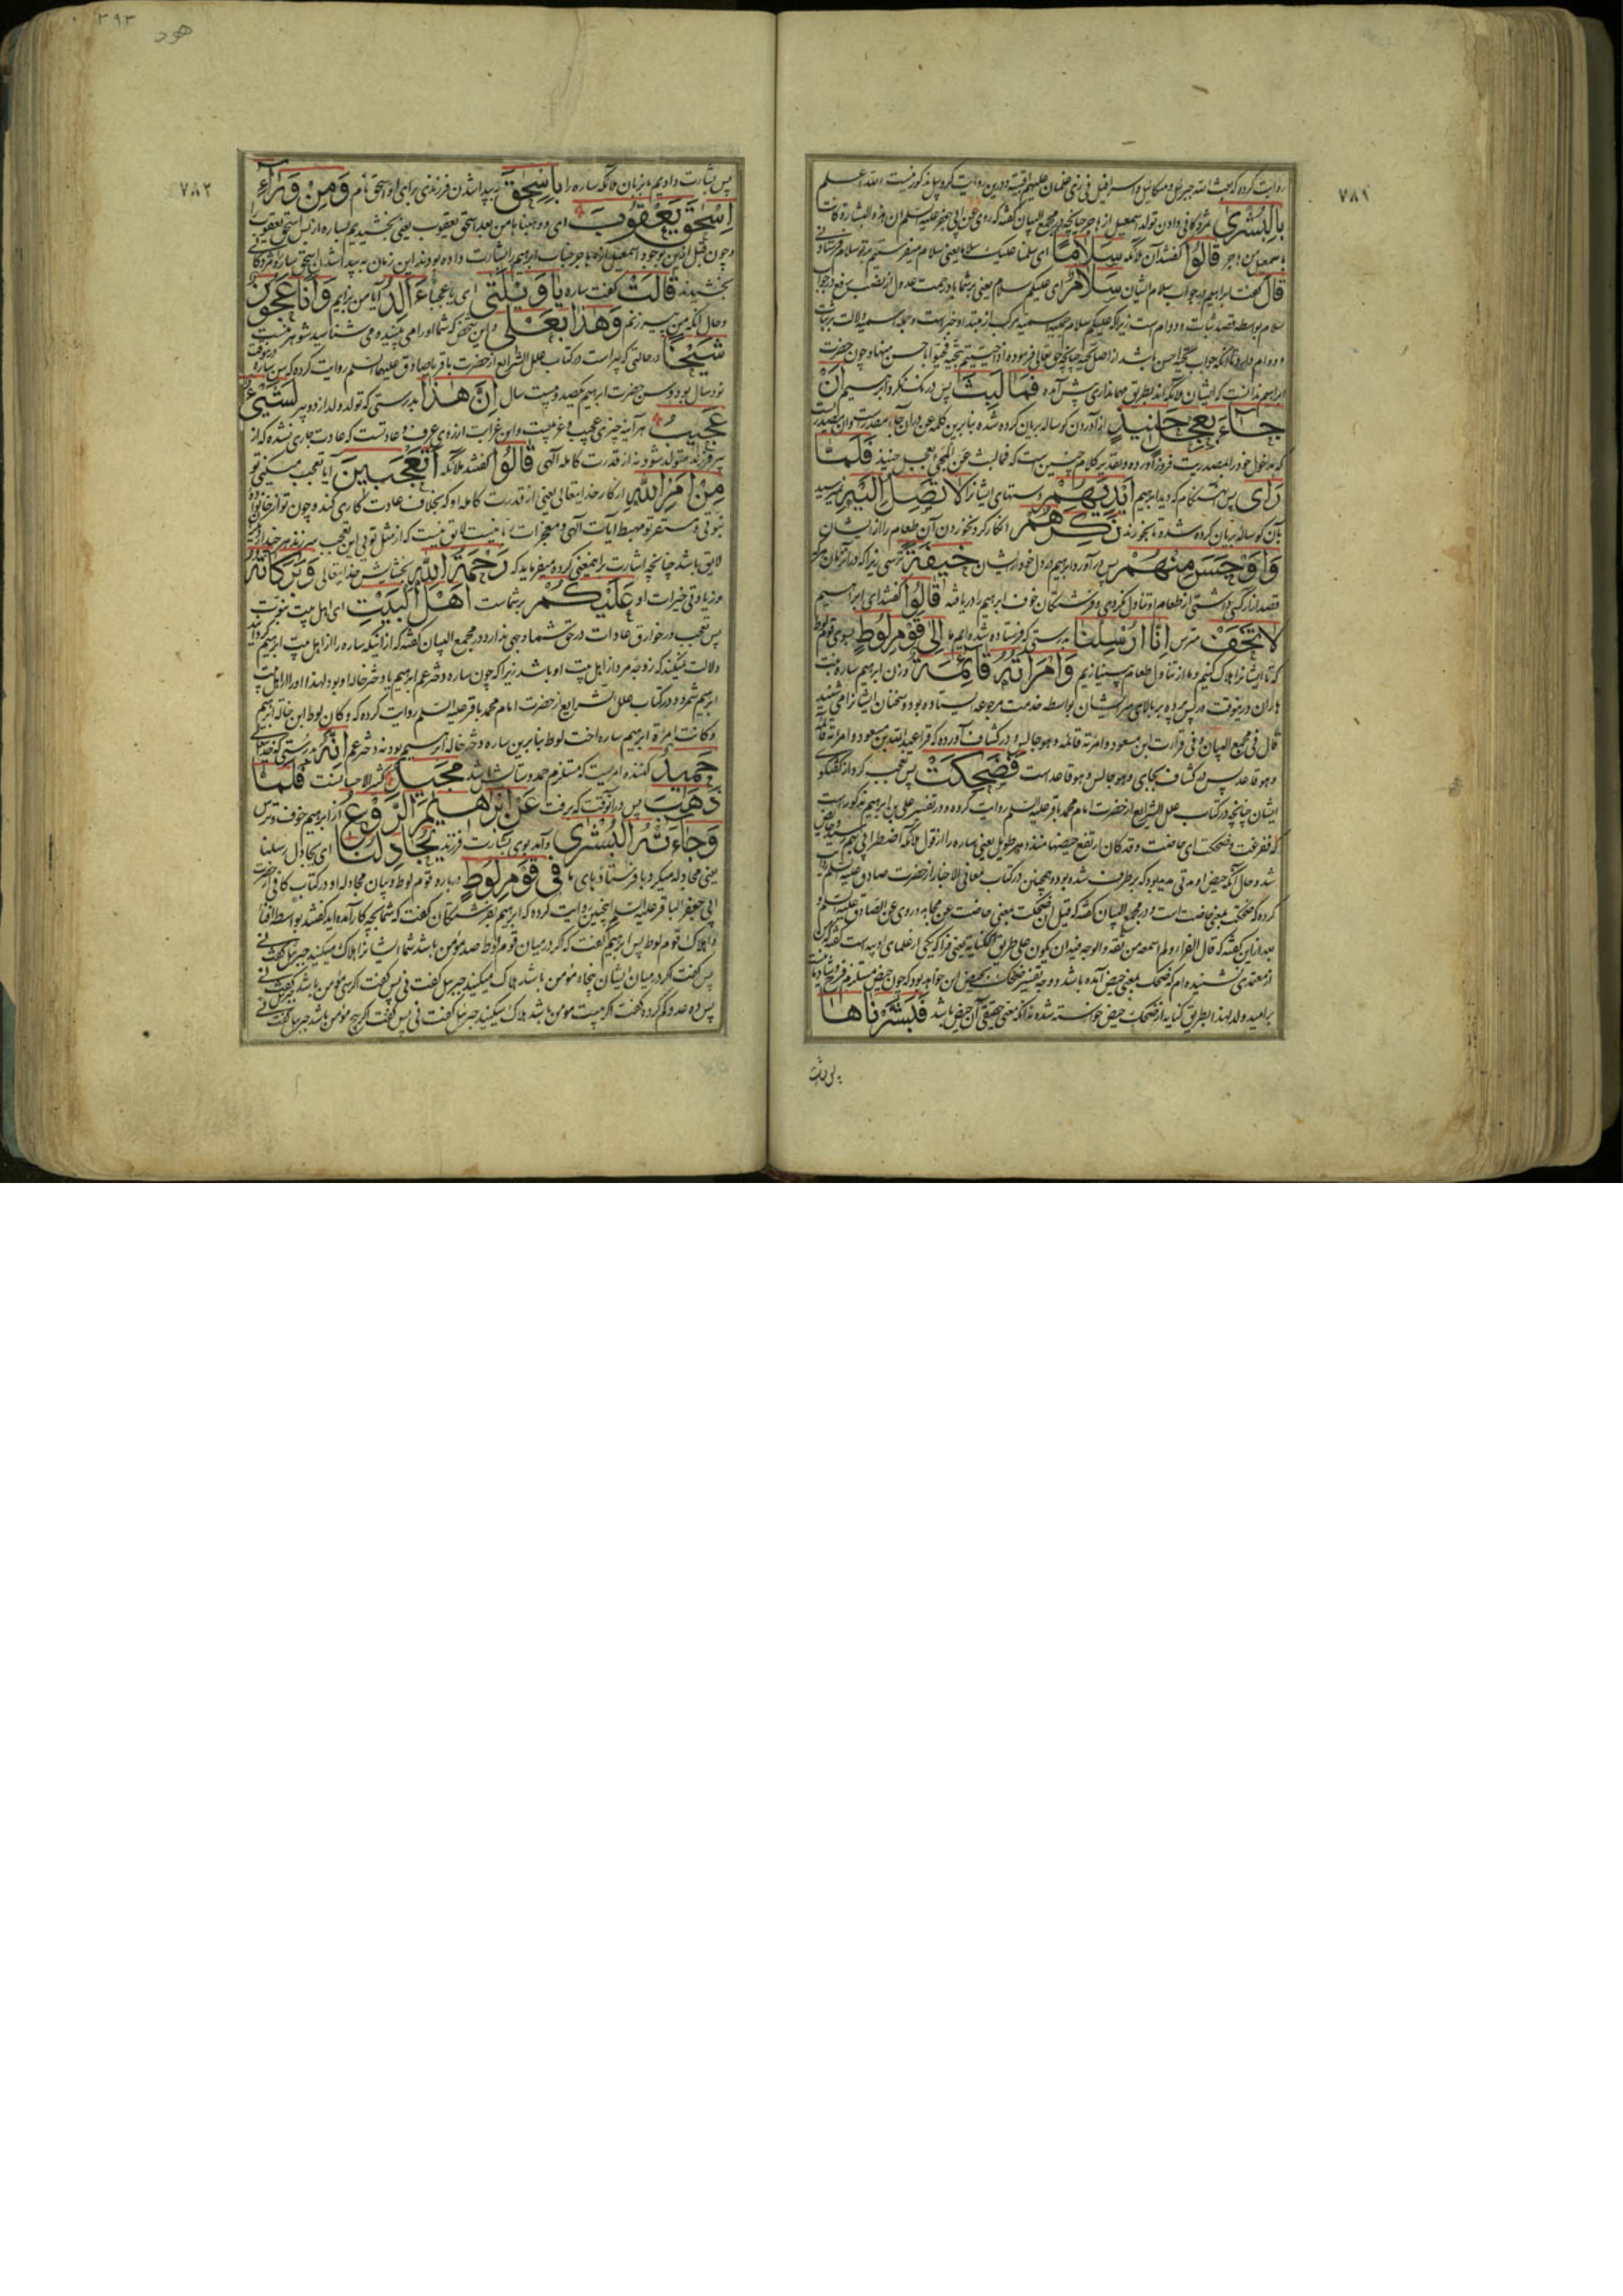 ٧٨١
روایت کرده که بعث الله جبرئیل و میکائیل و اسرافیل
بِالْبُشْرىٰ مژدگانی دادن تولد اسمعیل از هاجر چنانچه در مجمع البیان گفته که روی عن ابی جعفر علیه السلم ان هذه البشارة کانت
باسمعیل من هاجر قالُوا گفتند آن ملائکه سَلامًا ای سلمنا علیک سلاما یعنی سلام میفرستیم بر تو سلام فرستادنی
قالَ گفت ابراهیم در جواب سلام ایشان سَلامٌ ای علیکم سلام یعنی بر شما باد
سلام بواسطه قصد ثبات و دوام است زیرا که علیکم سلام جمله اسمیه
و دوام دارد تا آنکه جواب تحیه احسن باشد از اصل تحیه چنانچه حق تعالی فرموده اذا حییتم بتحیة فحیوا باحسن منها و چون حضرت
ابراهیم ندانست که ایشان ملائکه اند بطریق مهمانداری پیش آمده فَما لَبِثَ پس درنگ نکرد ابراهیم اَنْ
جاءَ بِعِجْلٍ حَنیذٍ از آوردن گوساله بریان کرده شده بنابرین کلمه عن
که مدخول خود را بمصدریت فروز آورده و تقدیر کلام چنین است که فما لبث عن المجیء بعجل حنیذ فَلَمّا
رَاىٰ پس هنگام که دید ابراهیم اَیْدِیَهُمْ دستهای ایشانرا لا تَصِلُ اِلَیْهِ نمیرسید
بآن گوساله بریان کرده شده و نمیخورند نَکِرَهُمْ انکار کرد نخوردن آن طعام را از ایشان
وَاَوْجَسَ مِنْهُمْ پس در آورد ابراهیم در دل خود از ایشان خیفَةً ترسی زیرا که در آنزمان هر که
قصد آزار کسی داشتی از طعام او تناول نکردی و فرشتگان خوف ابراهیم را دریافته قالُوا گفتند ای ابراهیم
لا تَخَفْ مترس اِنّا اُرْسِلْنا بدرستی که فرستاده شده ایم ما اِلىٰ قَوْمِ لُوطٍ بسوی قوم لوط
که تا ایشانرا هلاک کنیم و ما از تناول طعام بی نیازیم وَامْرَاَتُهُ قائِمَةٌ و زن ابراهیم ساره بنت
هاران درینوقت در پس پرده بر بالای سر ایشان بواسطه خدمت مرجوعه ایستاده بود و سخنان ایشانرا می شنید
قال فی مجمع البیان و فی قرائت ابن مسعود وامرأته قائمة وهو جالس و در کشاف آورده که قرأ عبد الله بن مسعود وامرأته قائمة
وهو قاعد پس در کشاف بجای وهو جالس وهو قاعد است فَضَحِکَتْ پس تعجب کرد از گفتگوی
ایشان چنانچه در کتاب علل الشرایع از حضرت امام محمد باقر علیه السلم روایت کرده و در تفسیر علی بن ابراهیم مذکور است
شد و حال آنکه حیض او مدتی مدید بود که برطرف شده بود و همچنین در کتاب معانی الاخبار از حضرت صادق علیه السلم روایت
کرده که ضحکت بمعنی حاضت است و در مجمع البیان گفته که قیل ان ضحکت بمعنی حاضت عن مجاهد و روی عن الصادق علیه السلم و
از معتمدی نشنیده ام که ضحکت بمعنی حیض آمده باشد
بر امید ولد لهذا بطریق کنایه از ضحک حیض خواسته شده نه آنکه معنی حقیقی آن حیض باشد فَبَشَّرْناها
٣٩٣
هود
٧٨٢
پس بشارت دادیم ما بزبان ملائکه ساره را بِاِسْحٰقَ بپیدا شدن فرزندی برای او اسحق نام وَمِنْ وَراءِ
اِسْحٰقَ یَعْقُوبَ ای ووهبناها من بعد اسحق یعقوب یعنی بخشیدیم بساره از پس اسحق یعقوب را
و چون قبل ازین بوجود اسمعیل از هاجر جناب ابراهیم را بشارت داده بودند این زمان به پیدا شدن اسحق ساره را مژدگانی
بخشیدند قالَتْ گفت ساره یا وَیْلَتىٰ ای یا عجباه ءَاَلِدُ آیا من بزایم وَاَنَا عَجُوزٌ
و حال آنکه من پیره زنم وَهٰذا بَعْلی و این شخص که شما او را می بینید و می شناسید شوهر منست
شَیْخًا در حالتی که پیر است در کتاب علل الشرایع از حضرت باقر یا صادق علیهما السلم روایت کرده که سن ساره درینوقت
نود سال بود و سن حضرت ابراهیم یکصد و بیست سال اِنَّ هٰذا بدرستی که تولد ولد از دو پیر لَشَیْءٌ
عَجیبٌ هر آینه چیزی عجیب و غریبست و این غرابت از روی عرف و عادتست که عادت جاری نشده که از
پیر فرزند متولد شود نه از قدرت کامله الهی قالُوا گفتند ملائکه اَتَعْجَبینَ آیا تعجب میکنی تو
مِنْ اَمْرِ اللهِ از کار خدایتعالی یعنی از قدرت کامله او که بخلاف عادت کاری کند و چون تو از خانواده
نبوتی و مستقر تو مهبط آیات الهی و معجزات نامتناهیست لایق نیست که از مثل توئی این تعجب سر زند
لایق باشد چنانچه اشارت را بمعنی کرده میفرماید که رَحْمَةُ اللهِ بخشایش خدایتعالی وَبَرَکاتُهُ
و زیادتی خیرات او عَلَیْکُمْ بر شماست اَهْلَ الْبَیْتِ ای اهل بیت نبوت
پس تعجب در خوارق عادات در حق شما وجهی ندارد در مجمع البیان گفته که از اینکه ساره را از اهل بیت ابراهیم گردانید
دلالت نمیکند که زوجه مرد از اهل بیت او باشد زیرا که چون ساره دختر عم ابراهیم یا دختر خاله او بود لهذا او را از اهل بیت
ابراهیم شمرد و در کتاب علل الشرایع از حضرت امام محمد باقر علیه السلم روایت کرده که و کان لوط ابن خالة ابراهیم
و کانت امرأة ابراهیم ساره اخت لوط بنابرین ساره دختر خاله ابراهیم بود نه دختر عم اِنَّهُ بدرستی که خدایتعالی
حَمیدٌ کننده امریست که مستلزم حمد و ستایش باشد مَجیدٌ کثیر الاحسانست فَلَمّا
ذَهَبَ پس در آنوقت که برفت عَنْ اِبْرٰهیمَ الرَّوْعُ از ابراهیم خوف و ترس
وَجاءَتْهُ الْبُشْرىٰ و آمد بوی بشارت فرزند یُجادِلُنا ای یجادل رسلنا
یعنی مجادله میکرد با فرستادهای ما فی قَوْمِ لُوطٍ درباره قوم لوط و بیان مجادله او در کتاب کافی از حضرت
ابی جعفر الباقر علیه السلم اینچنین روایت کرده که ابراهیم بفرشتگان گفت که شما بچه کار آمده اید گفتند بواسطه افنا
و اهلاک قوم لوط پس ابراهیم گفت که اگر در میان قوم لوط صد مؤمن باشد شما ایشانرا هلاک میکنید جبرئیل گفت نی
پس گفت اگر در میان ایشان پنجاه مؤمن باشد هلاک میکنید جبرئیل گفت نی پس گفت اگر سی مؤمن باشد جبرئیل گفت نی
پس ده عدد کم کرده گفت اگر بیست مؤمن باشد هلاک میکنید جبرئیل گفت نی پس گفت اگر پنج مؤمن باشد جبرئیل گفت نی